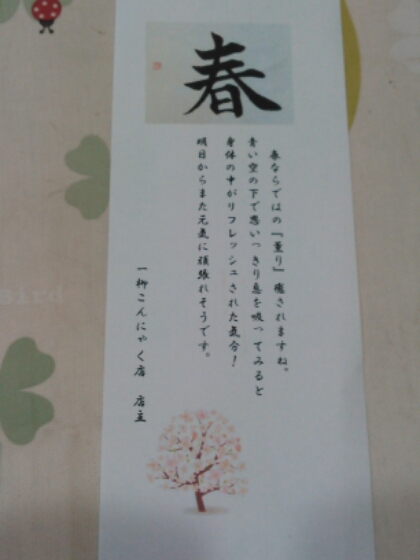 春
春ならではの『薫り』癒されますね。
青い空の下で思いっきり息を吸ってみると
身体の中がリフレッシュされた気分！
明日からまた元気に頑張れそうです。
一柳こんにゃく店 店主
Bird